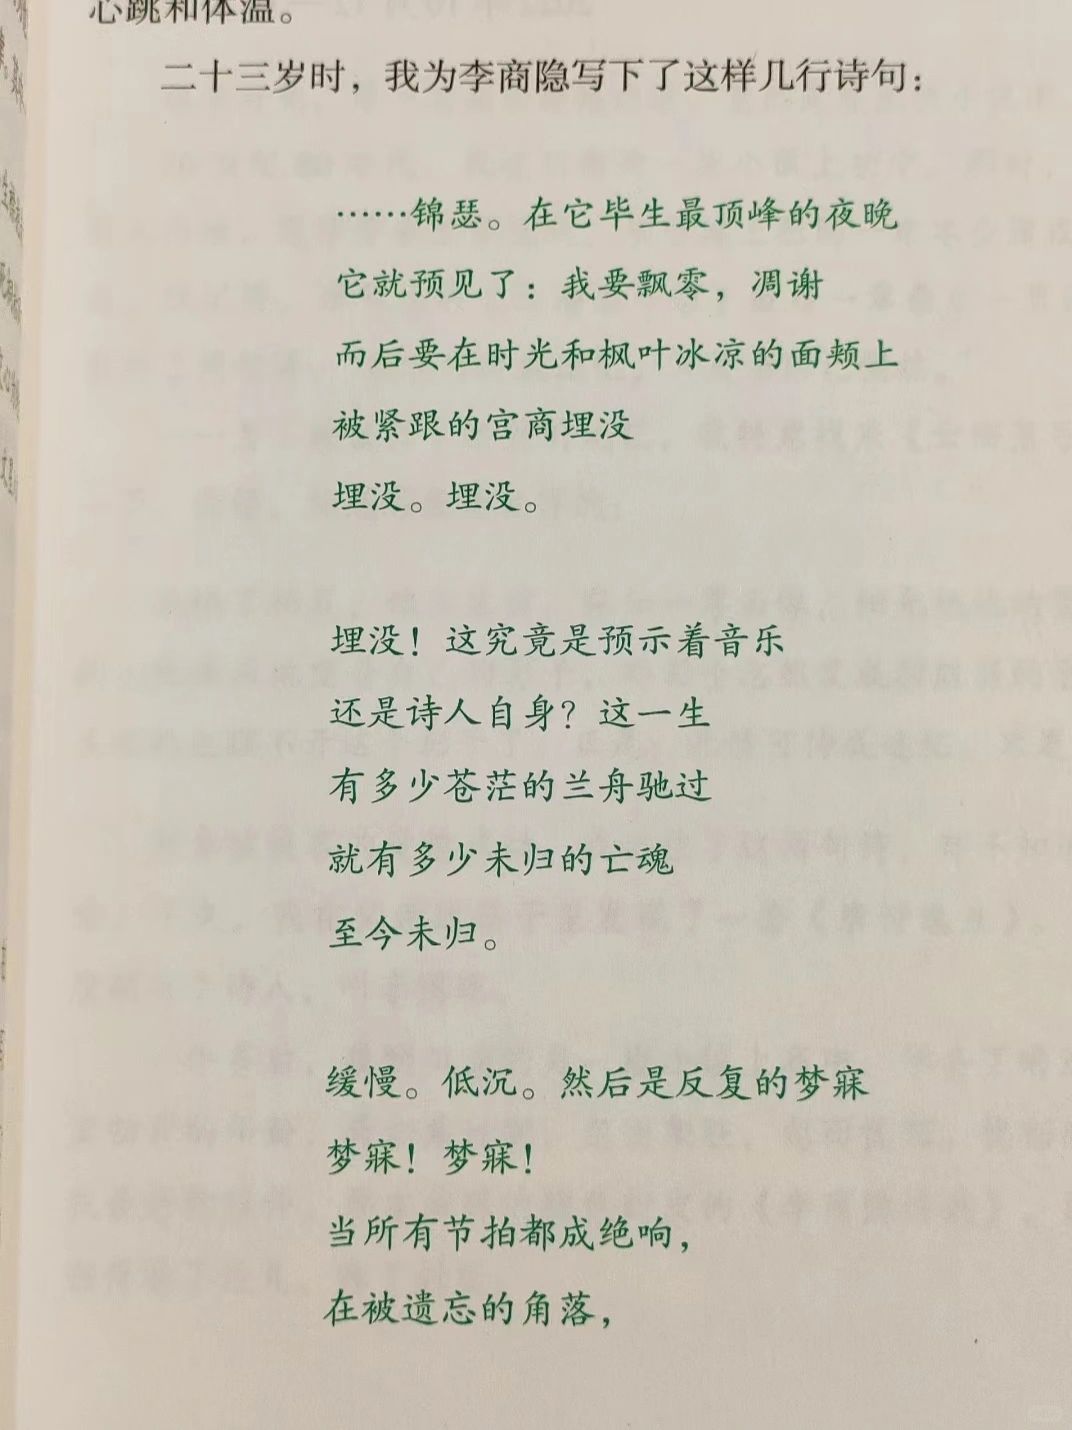 心跳和体温。
二十三岁时，我为李商隐写下了这样几行诗句：
……锦瑟。在它毕生最顶峰的夜晚
它就预见了：我要飘零，凋谢
而后要在时光和枫叶冰凉的面颊上
被紧跟的宫商埋没
埋没。埋没。
埋没！这究竟是预示着音乐
还是诗人自身？这一生
有多少苍茫的兰舟驰过
就有多少未归的亡魂
至今未归。
缓慢。低沉。然后是反复的梦寐
梦寐！梦寐！
当所有节拍都成绝响，
在被遗忘的角落，